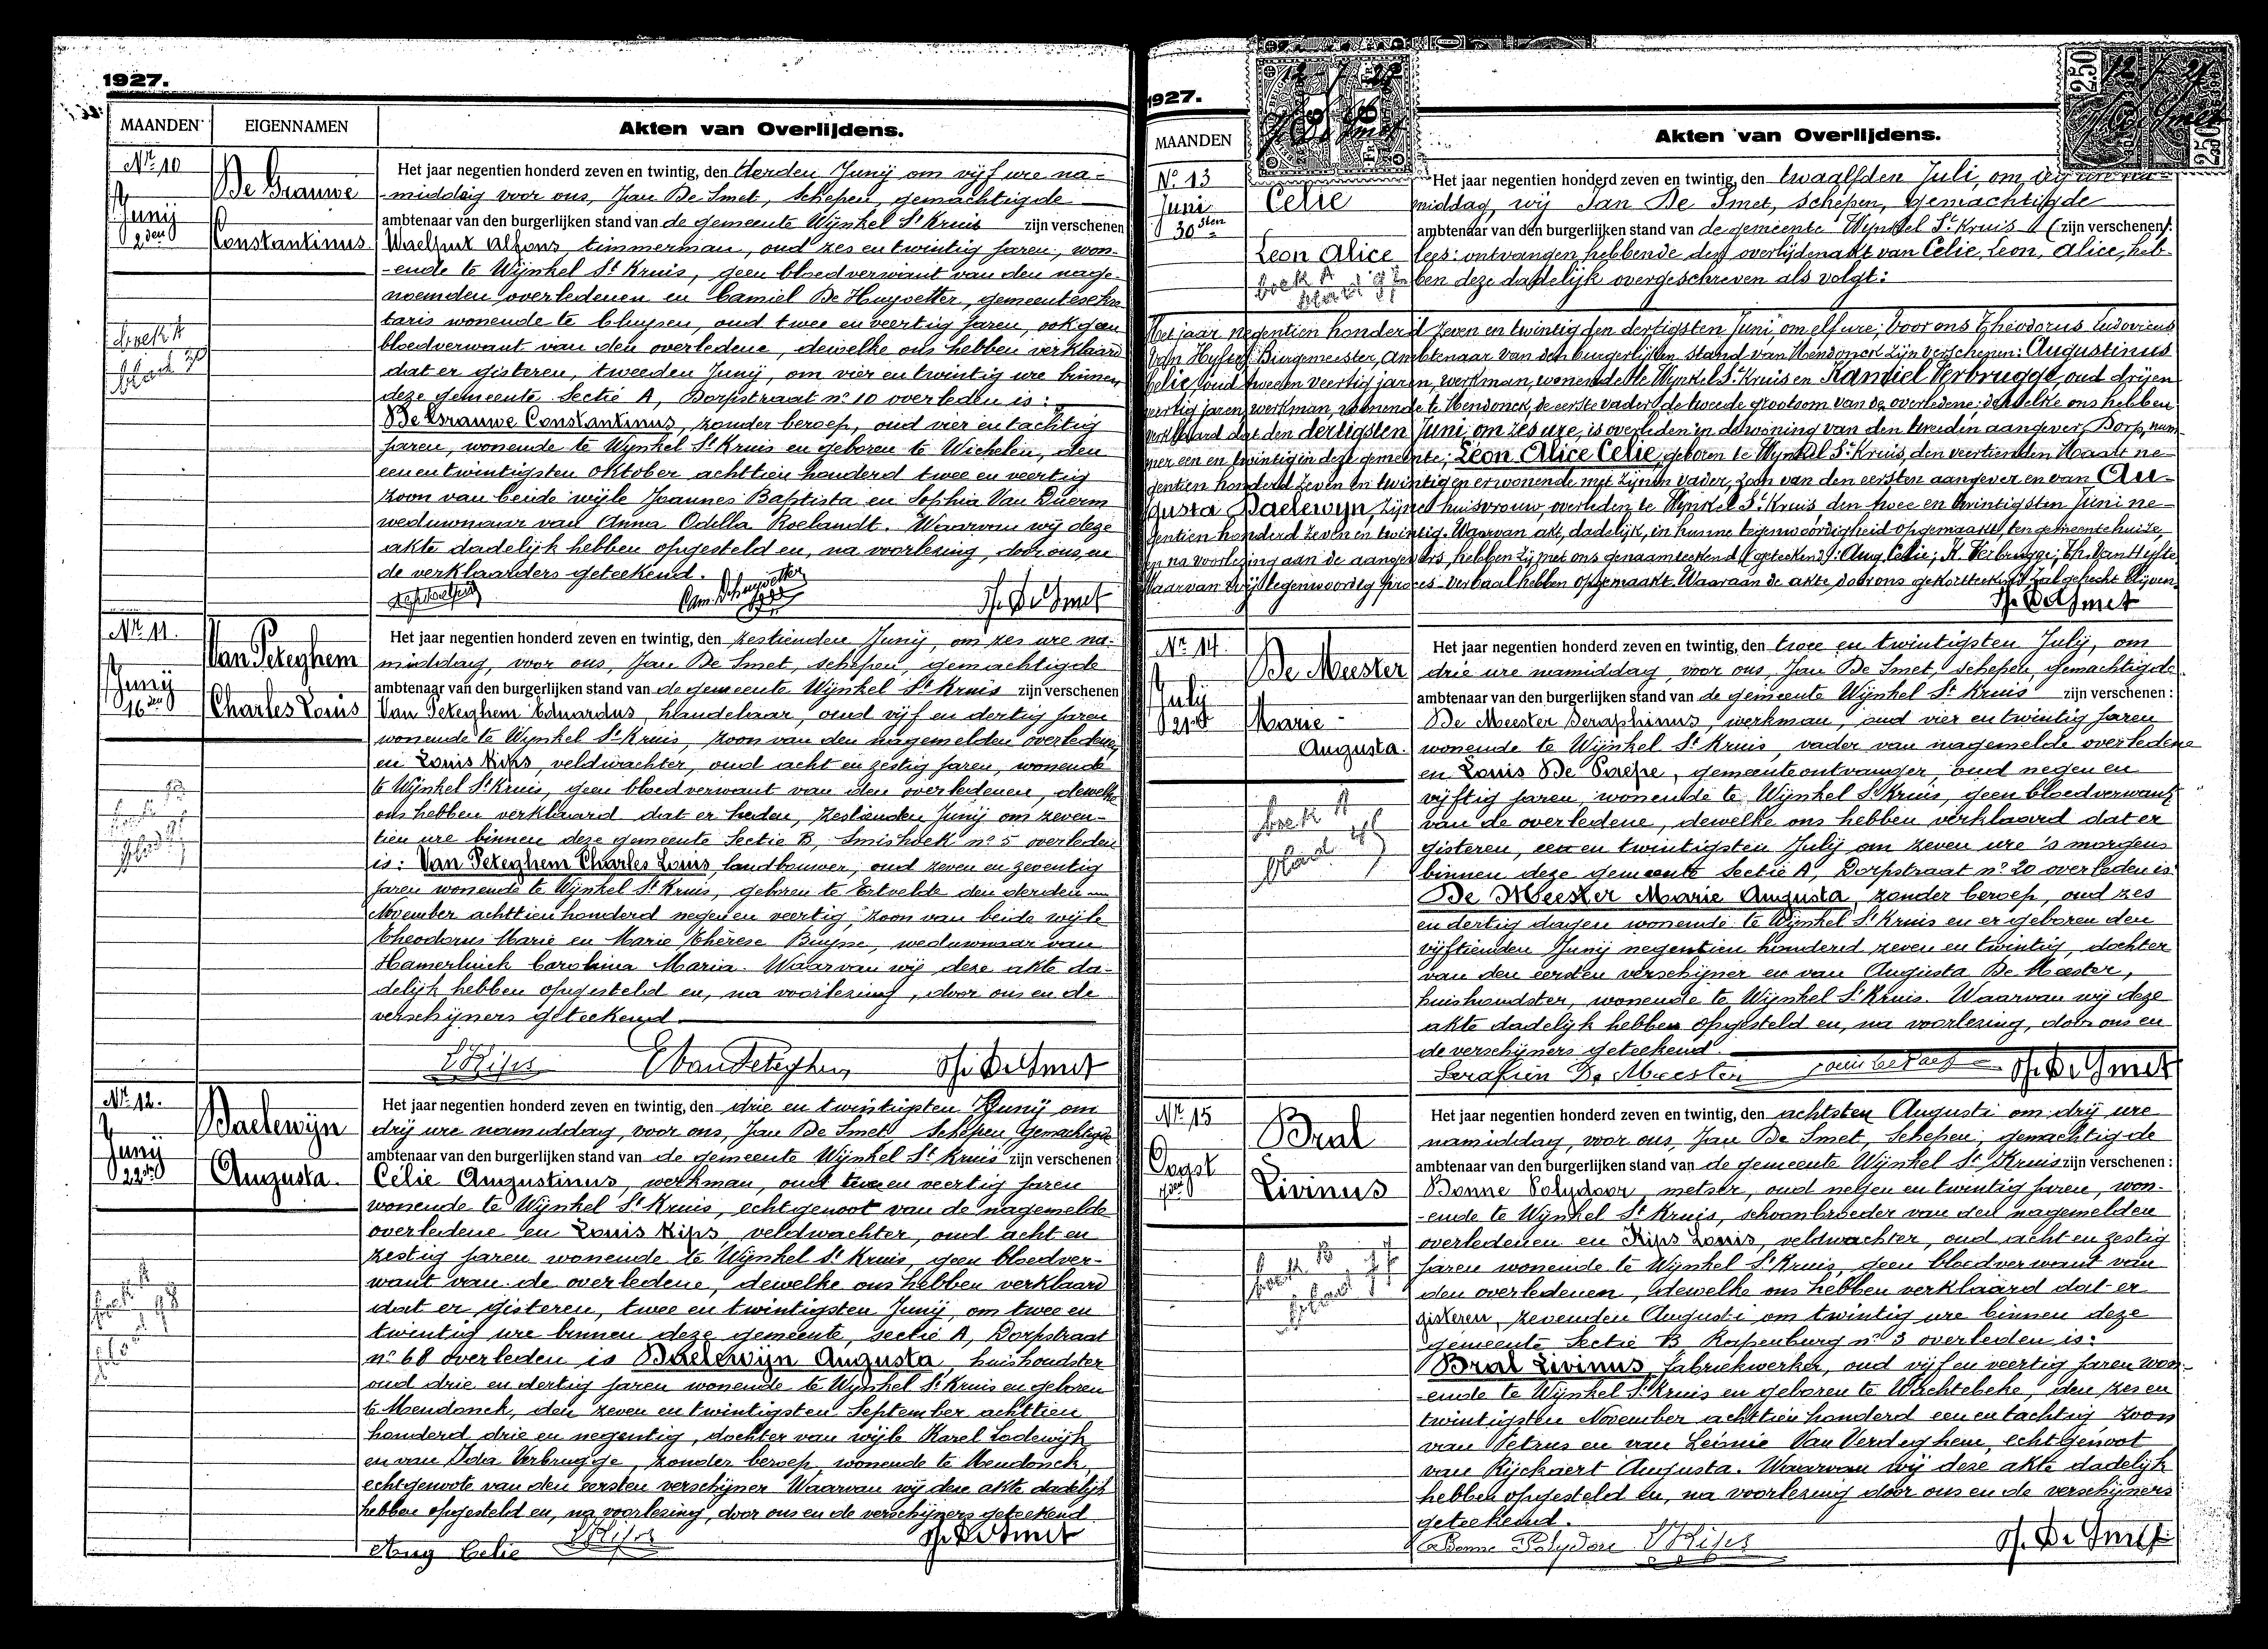 1927.
MAANDEN EIGENNAMEN Akten van Overlijdens.
Nr. 10
De Brauwe
Junij
2den
Constantinus
Het jaar negentien honderd zeven en twintig, den derden Junij om vijf ure na-
middag voor ons, Jan De Smet, schepen, gemachtigde
ambtenaar van den burgerlijken stand van de gemeente Wijnkel St Kruis zijn verschenen
Alfons timmerman, oud zes en twintig jaren, won-
-ende te Wijnkel St Kruis, geen bloedverwant van den nage-
noemden overledenen en Camiel De Huyvetter, gemeentesekre
taris wonende te Cluysen, oud twee en veertig jaren, ook geen
bloedverwant van den overledene, dewelke ons hebben verklaard
dat er gisteren, tweeden Junij, om vier en twintig ure binnen
deze gemeente Sectie A, Dorpstraat no 10 overleden is:
De Brauwe Constantinus, zonder beroep, oud vier en tachtig
jaren, wonende te Wynkel St Kruis en geboren te Wichelen, den
een en twintigsten Oktober achttien honderd twee en veertig
zoon van beide wijle Joannes Baptista en Sophia Van Durm
weduwnaar van Anna Odilla Roelandt. Waarvan wij deze
akte dadelijk hebben opgesteld en, na voorlezing, door ons en
de verklaarders geteekend.
Cam. De Huyvetter
J. De Smet
Nr. 11.
Van Peteghem
Junij
16den
Charles Louis
Het jaar negentien honderd zeven en twintig, den zestienden Junij, om zes ure na-
middag, voor ons, Jan De Smet, schepen, gemachtigde
ambtenaar van den burgerlijken stand van de gemeente Wijnkel St Kruis zijn verschenen
Van Peteghem Eduardus, handelaar, oud vijf en dertig jaren
wonende te Wynkel St Kruis, zoon van den nagemelden overledene,
en Louis Kips, veldwachter, oud acht en zestig jaren, wonende
te Wijnkel St Kruis, geen bloedverwant van den overledenen, dewelke
ons hebben verklaard dat er heden, zestienden Junij om zeven-
tien ure binnen deze gemeente Sectie B, Smishoek no 5 overleden
is: Van Peteghem Charles Louis, landbouwer, oud zeven en zeventig
jaren wonende te Wijnkel St Kruis, geboren te Ertvelde den derden
November achttien honderd negen en veertig zoon van beide wijle
Theodorus Marie en Marie Thérèse Buysse, weduwnaar van
Hamerlinck Carolina Maria. Waarvan wij deze akte da-
delijk hebben opgesteld en, na voorlezing, door ons en de
verschijners geteekend.
L Kips E Van Peteghem J. De Smet
Nr. 12.
Baelewijn
Junij
22sten
Augusta.
Het jaar negentien honderd zeven en twintig, den drie en twintigsten Junij om
drij ure namiddag, voor ons, Jan De Smet Schepen Gemachtigde
ambtenaar van den burgerlijken stand van de gemeente Wijnkel St Kruis zijn verschenen:
Celie Augustinus, werkman, oud twee en veertig jaren
wonende te Wijnkel St Kruis, echtgenoot van de nagemelde
overledene en Louis Kips, veldwachter, oud acht en
zestig jaren wonende te Wijnkel St Kruis, geen bloedver-
want van de overledene, dewelke ons hebben verklaard
dat er gisteren, twee en twintigsten Junij, om twee en
twintig ure binnen deze gemeente, sectie A, Dorpstraat
no 68 overleden is Baelewijn Augusta, huishoudster
oud drie en dertig jaren wonende te Wynkel St Kruis en geboren
te Mendonck, den zeven en twintigsten September achttien
honderd drie en negentig, dochter van wijle Karel Lodewijk
en van Ida Verbrugge, zonder beroep, wonende te Mendonck,
echtgenoote van den eersten verschijner Waarvan wij deze akte dadelijk
hebben opgesteld en, na voorlezing, door ons en de verschijners geteekend
Aug Celie L Kips J. De Smet
1927.
MAANDEN Akten van Overlijdens.
No. 13
Juni
30sten
Celie
Leon Alice
Het jaar negentien honderd zeven en twintig, den twaalfden Juli, om drij ure na
middag, wij Jan De Smet, Schepen, Gemachtigde
ambtenaar van den burgerlijken stand van de gemeente Wynkel St Kruis (zijn verschenen):
lees: ontvangen hebbende den overlijdenakt van Celie, Leon, Alice, heb-
ben deze dadelijk overgeschreven als volgt:
Het jaar negentien honderd zeven en twintig den dertigsten Juni, om elf ure, voor ons Theodorus Ludovicus
Van Hyfte, Burgemeester, Ambtenaar van den burgerlijken stand van Mendonck zijn verschenen: Augustinus
Celie, oud twee en veertig jaren, werkman, wonende te Wynkel St Kruis en Kamiel Verbrugge, oud drij en
veertig jaren, werkman, wonende te Mendonck, de eerste vader, de tweede grootoom van de overledene; dewelke ons hebben
verklaard dat den dertigsten Juni, om zes ure, is overleden in de woning van den tweeden aangever, Dorp, num-
mer een en twintig in deze gemeente; Léon Alice Celie, geboren te Wynkel St Kruis, den veertienden Maart ne-
gentien honderd zeven en twintig en er wonende met zijnen vader, zoon van den eersten aangever en van Au-
gusta Baelewyn, zijne huisvrouw, overleden te Wynkel St Kruis, den twee en twintigsten Juni ne-
gentien honderd zeven en twintig. Waarvan akt, dadelijk, in hunne tegenwoordigheid opgemaakt, ten gemeentehuize,
en na voorlezing aan de aangevers, hebben zij met ons genaamteekend (geteekend): Aug. Celie; K. Verbrugge; Th. Van Hyfte
Waarvan wij tegenwoordig proces-verbaal hebben opgemaakt. Waaraan de akte door ons gekorttekend zal gehecht blijven.
J. De Smet
Nr. 14.
De Meester
July
21sten
Marie
Augusta.
Het jaar negentien honderd zeven en twintig, den twee en twintigsten July, om
drie ure namiddag voor ons, Jan De Smet, schepen, gemachtigde
ambtenaar van den burgerlijken stand van de gemeente Wijnkel St Kruis zijn verschenen:
De Meester Seraphinus, werkman, oud vier en twintig jaren
wonende te Wijnkel St Kruis, vader van nagemelde overledene
en Louis De Paepe, gemeenteontvanger, oud negen en
vijftig jaren, wonende te Wijnkel St Kruis, geen bloedverwant
van de overledene, dewelke ons hebben verklaard dat er
gisteren, een en twintigsten July om zeven ure 's morgens
binnen deze gemeente Sectie A, Dorpstraat no 20 overleden is
De Meester Marie Augusta, zonder beroep, oud zes
en dertig dagen wonende te Wijnkel St Kruis en er geboren den
vijftienden Junij negentien honderd zeven en twintig, dochter
van den eersten verschijner en van Augusta De Meester,
huishoudster, wonende te Wijnkel St Kruis. Waarvan wij deze
akte dadelijk hebben opgesteld en, na voorlezing, door ons en
de verschijners geteekend.
Serafien De Meester J. De Smet
Nr. 15
Bral
Oogst
7den
Livinus
Het jaar negentien honderd zeven en twintig, den achtsten Augusti om drij ure
namiddag, voor ons, Jan De Smet, Schepen, gemachtigde
ambtenaar van den burgerlijken stand van de gemeente Wijnkel St Kruis zijn verschenen:
Bonne Polydoor, metser, oud negen en twintig jaren, won-
-ende te Wynkel St Kruis, schoonbroeder van den nagemelden
overledenen en Kips Louis, veldwachter, oud acht en zestig
jaren wonende te Wijnkel St Kruis, geen bloedverwant van
den overledenen, dewelke ons hebben verklaard dat er
gisteren, zevenden Augusti om twintig ure binnen deze
gemeente Sectie B Rapenburg no 3 overleden is:
Bral Livinus, fabriekwerker, oud vijf en veertig jaren won-
-ende te Wynkel St Kruis en geboren te Wachtebeke, den zes en
twintigsten November achttien honderd een en tachtig zoon
van Petrus en van Leonie Van Verdeghem, echtgenoot
van Rijckaert Augusta. Waarvan wij deze akte dadelijk
hebben opgesteld en, na voorlezing door ons en de verschijners
geteekend.
Bonne Polydore L Kips J. De Smet